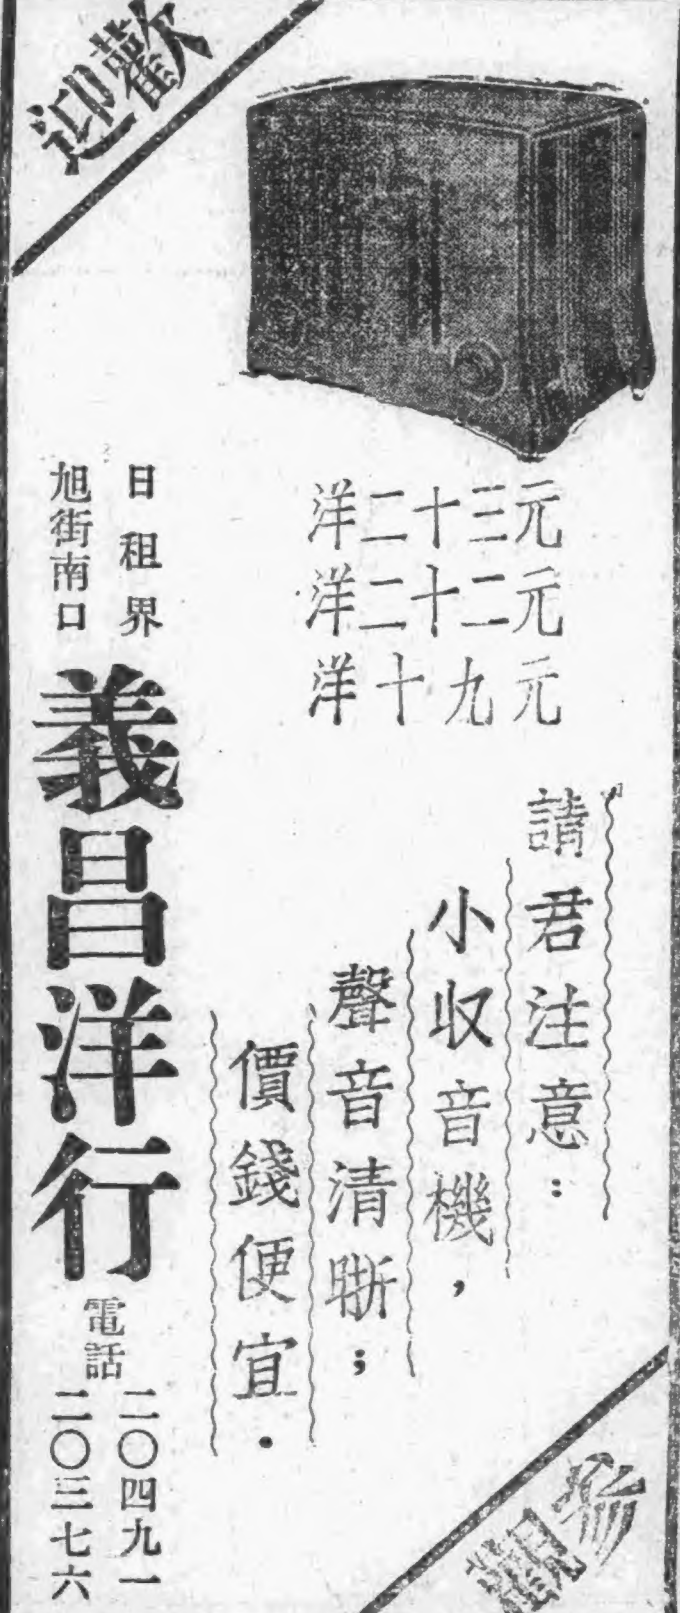 歡迎
洋二十三元
洋二十二元
洋十九元
請君注意：
小収音機，
聲音清晣；
價錢便宜．
日租界
旭街南口
義昌洋行
電話
二〇四九一
二〇三七六
參觀